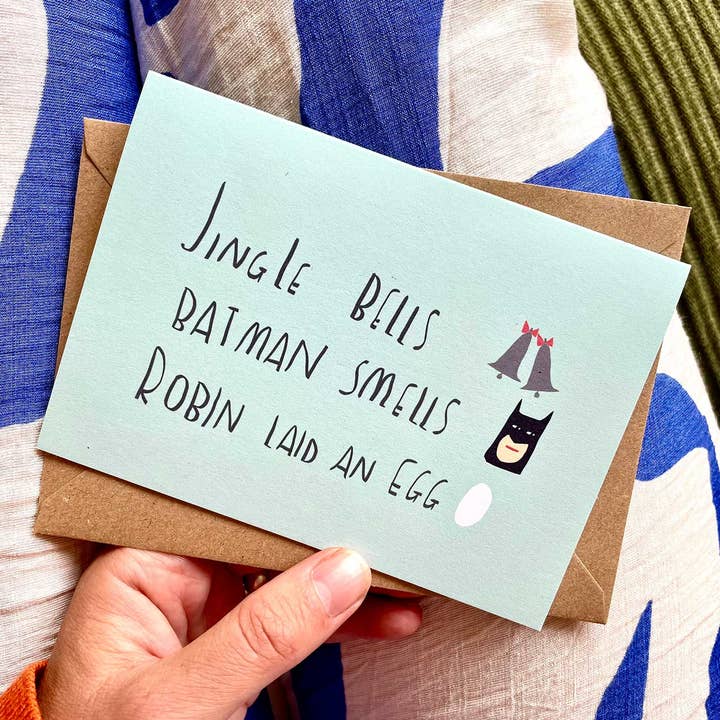 Jingle Bells
Batman Smells
Robin laid an egg